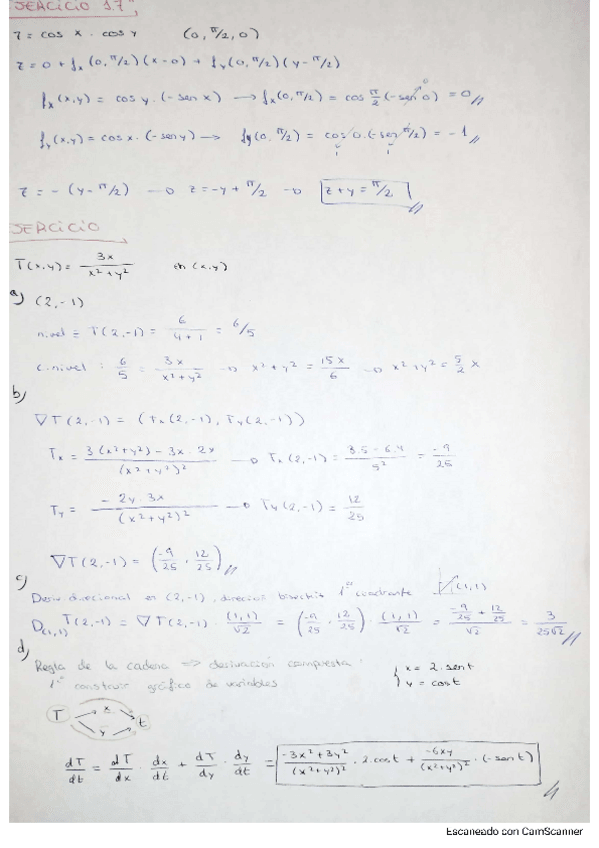 EJERCICIO 1.7
z = cos x · cos y (0, π/2, 0)
z = 0 + fx(0, π/2)(x-0) + fy(0, π/2)(y-π/2)
fx(x,y) = cos y · (-sen x) → fx(0, π/2) = cos π/2 (-sen 0) = 0
fy(x,y) = cos x · (-sen y) → fy(0, π/2) = cos 0 · (-sen π/2) = -1
z = -(y-π/2) → z = -y + π/2 → z + y = π/2
EJERCICIO
T(x,y) = 3x / (x² + y²) en (x,y)
a) (2,-1)
nivel = T(2,-1) = 6 / (4+1) = 6/5
c. nivel : 6/5 = 3x / (x² + y²) → x² + y² = 15x/6 → x² + y² = 5/2 x
b)
∇T(2,-1) = (Tx(2,-1), Ty(2,-1))
Tx = (3(x²+y²) - 3x · 2x) / (x²+y²)² → Tx(2,-1) = (3·5 - 6·4) / 5² = -9/25
Ty = (-2y · 3x) / (x²+y²)² → Ty(2,-1) = 12/25
∇T(2,-1) = (-9/25, 12/25)
c)
Deriv direccional en (2,-1), dirección bisectriz 1º cuadrante (1,1)
D(1,1) T(2,-1) = ∇T(2,-1) (1,1)/√2 = (-9/25, 12/25) · (1,1)/√2 = (-9/25 + 12/25)/√2 = 3/(25√2)
d)
Regla de la cadena => derivación compuesta. { x = 2·sen t
1º construir gráfico de variables y = cos t
T x y t
dT/dt = dT/dx · dx/dt + dT/dy · dy/dt = (-3x² + 3y²)/(x²+y²)² · 2·cos t + (-6xy)/(x²+y²)² · (-sen t)
Escaneado con CamScanner